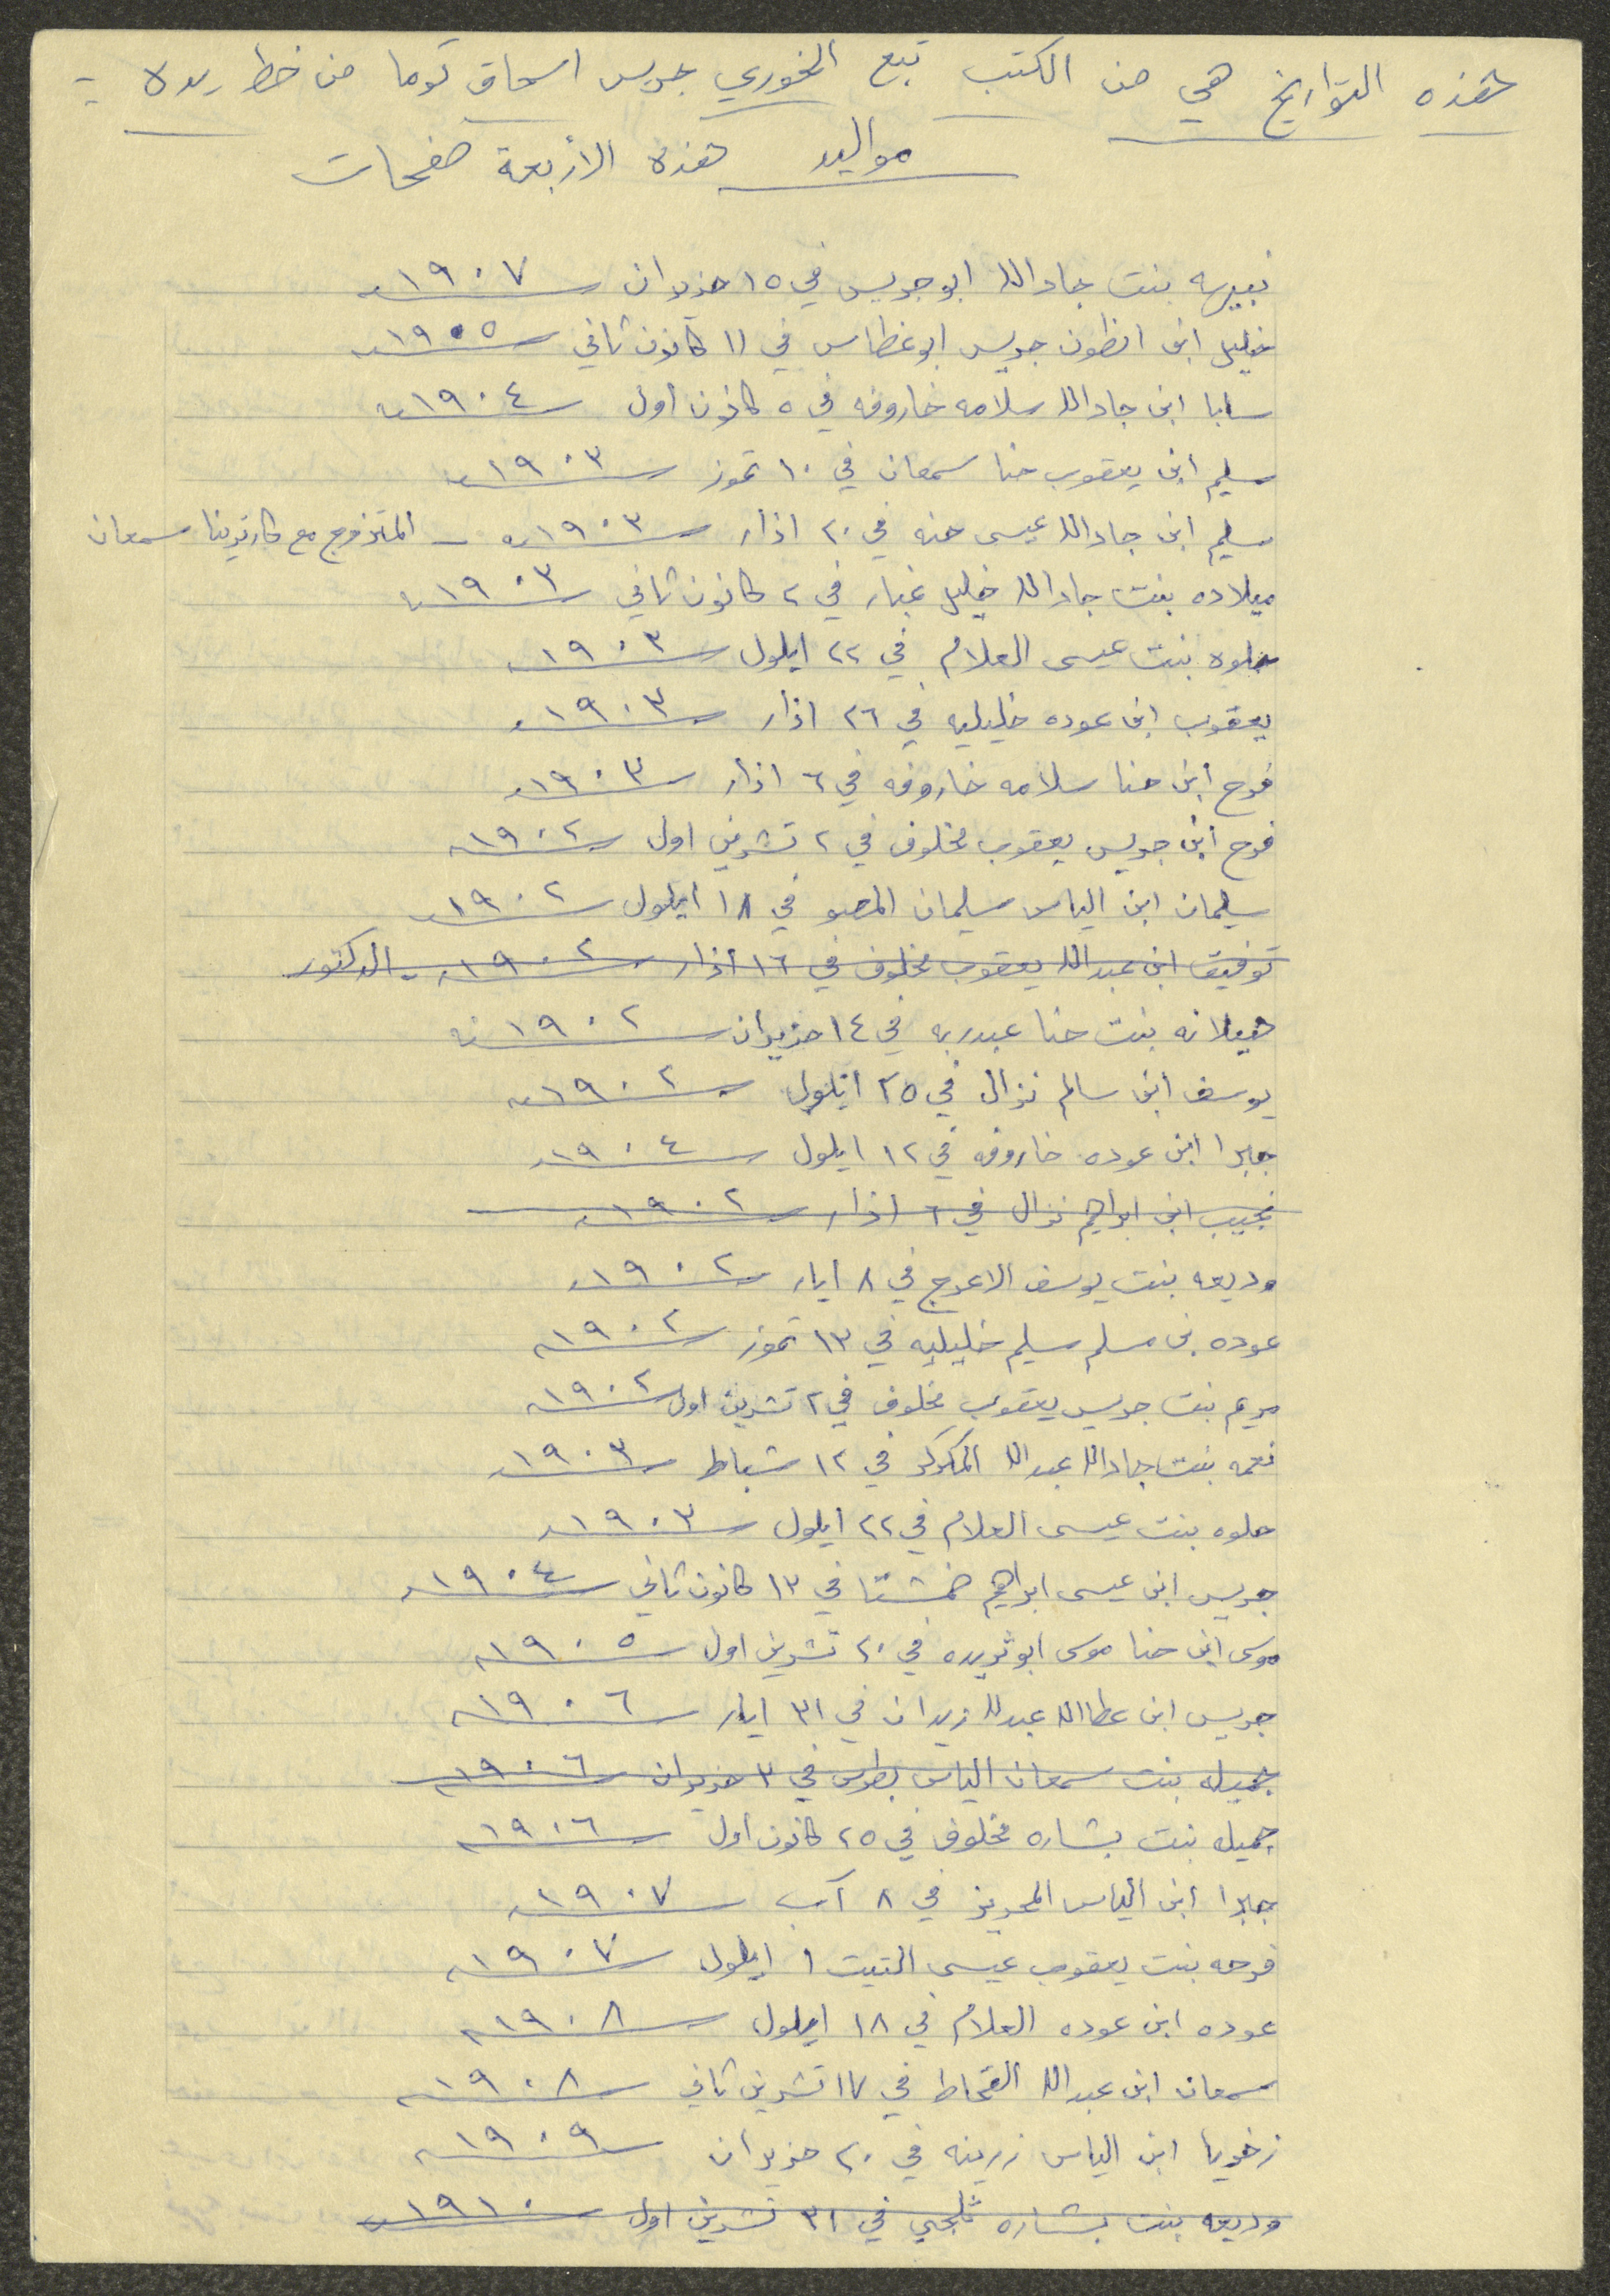 هذه التواريخ هي من الكتب تبع الخوري جريس اسحاق توما من خط يده :-
مواليد هذه الأربعة صفحات
نبيهه بنت جادالله ابو جريس في ١٥ حزيران سنة ١٩٠٧
خليل ابن انطون جريس ابو غطاس في ١١ كانون ثاني سنة ١٩٠٥
سابا ابن جادالله سلامه خاروفه في ٥ كانون أول سنة ١٩٠٤
سليم ابن يعقوب حنا سمعان في ١٠ تموز سنة ١٩٠٣
سليم ابن جادالله عيسى حنه في ٢٠ اذار سنة ١٩٠٣ - المتزوج مع كاترينا سمعان
ميلاده بنت جادالله خليل غبار في ٢ كانون ثاني سنة ١٩٠٣
حلوه بنت عيسى العلام في ٢٢ ايلول سنة ١٩٠٣
يعقوب ابن عوده خليليه في ٢٦ اذار سنة ١٩٠٣
فرح ابن حنا سلامه خاروفه في ٦ اذار سنة ١٩٠٣
فرح ابن جريس يعقوب مخلوف في ٢ تشرين اول سنة ١٩٠٢
سليمان ابن الياس سليمان في ١٨ ايلول سنة ١٩٠٢
توفيق ابن عبدالله يعقوب مخلوف في ١٦ أذار سنة ١٩٠٢ - الدكتور
هيلانه بنت حنا عبدربه في ١٤ حزيران سنة ١٩٠٢
يوسف ابن سالم نزال في ٢٥ ايلول سنة ١٩٠٢
جبرا ابن عوده خاروفه في ١٢ ايلول سنة ١٩٠٤
نجيب ابن ابراهيم نزال في ٦ اذار سنة ١٩٠٢
وديعه بنت يوسف الاعرج في ٨ ايار سنة ١٩٠٢
عوده بن مسلم سليم خليليه في ١٣ تموز سنة ١٩٠٢
مريم بنت جريس يعقوب مخلوف في ٢ تشرين اول سنة ١٩٠٢
نعمه بنت جادالله عبدالله المكركر في ١٢ شباط سنة ١٩٠٣
حلوه بنت عيسى العلام في ٢٢ ايلول سنة ١٩٠٣
جريس ابن عيسى ابراهيم خمشتا في ١٣ كانون ثاني سنة ١٩٠٤
موسى ابن حنا موسى ابو ثريده في ٢٠ تشرين اول سنة ١٩٠٥
جريس ابن عطاالله عبدالله زيدان في ٣١ ايار سنة ١٩٠٦
جميله بنت سمعان الياس بطرس في ٣ حزيران سنة ١٩٠٦
جميله بنت بشاره مخلوف في ٢٥ كانون أول سنة ١٩٠٦
جبرا ابن الياس المحريز في ٨ آب سنة ١٩٠٧
فرحه بنت يعقوب عيسى التيت ١ ايلول سنة ١٩٠٧
عوده ابن عوده العلام في ١٨ ايلول سنة ١٩٠٨
سمعان ابن عبدالله القحاط في ١٧ تشرين ثاني سنة ١٩٠٨
زخريا ابن الياس زرينه في ٢٠ حزيران سنة ١٩٠٩
وديعه بنت بشاره ثلجي في ٣١ تشرين اول سنة ١٩١٠